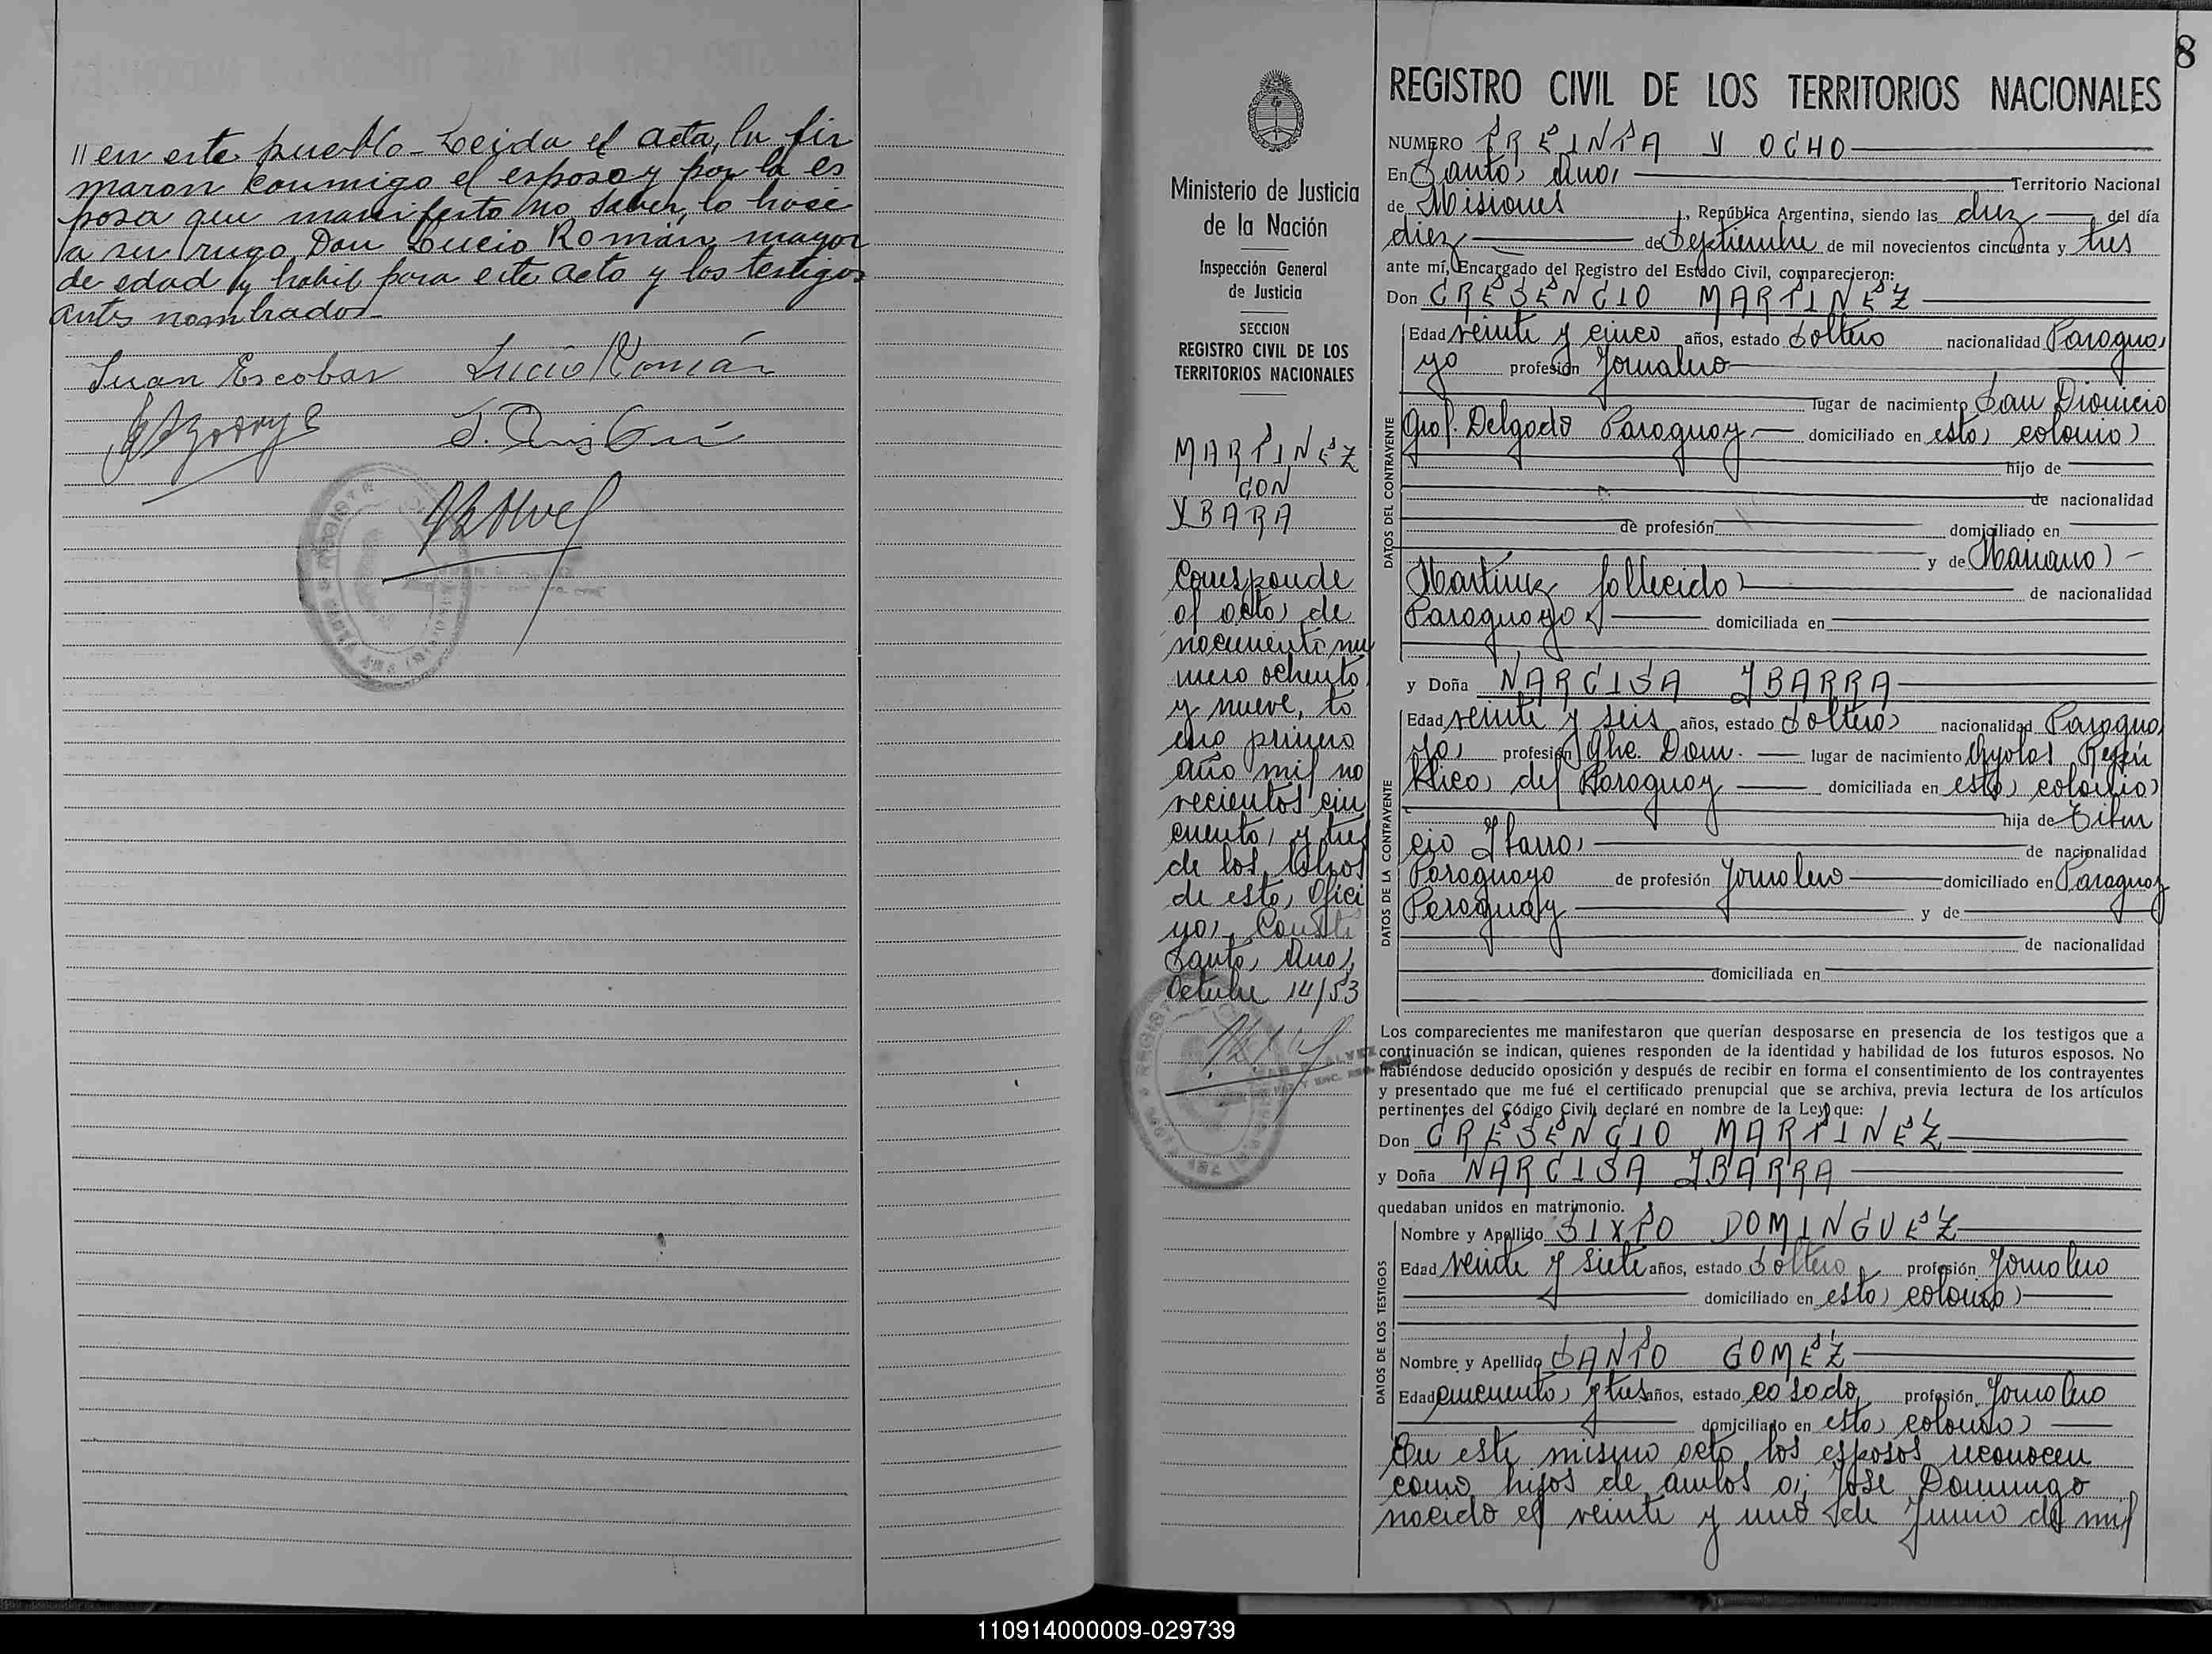 // en este pueblo - Leida el acta, la fir
maron conmigo el esposo y por la es
posa que manifesto no saber, lo hace
a su ruego Don Lucio Román, mayor
de edad y habil para este acto y los testigos
antes nombrados -
Juan Escobar Lucio Román
8
REGISTRO CIVIL DE LOS TERRITORIOS NACIONALES
Ministerio de Justicia
de la Nación
Inspección General
de Justicia
SECCION
REGISTRO CIVIL DE LOS
TERRITORIOS NACIONALES
MARTINEZ
CON
YBARA
Corresponde
al acta de
nacimiento nu
mero ochenta
y nueve, to
mo primero
año mil no
vecientos cin
cuenta y tres
de los libros
de esta Ofici
na, Conste
Santa Ana,
Octubre 14/53
NUMERO TREINTA Y OCHO
En Santa Ana, Territorio Nacional
de Misiones, República Argentina, siendo las diez del día
diez de Septiembre de mil novecientos cincuenta y tres
ante mí, Encargado del Registro del Estado Civil, comparecieron:
Don CRESENCIO MARTINEZ
DATOS DEL CONTRAYENTE
Edad veinte y cinco años, estado Soltero nacionalidad Paragua
yo profesión Jornalero
lugar de nacimiento San Dionicio
Gral. Delgado Paraguay domiciliado en esta colonia
hijo de
de nacionalidad
de profesión domiciliado en
y de Mariano
Martinez fallecido de nacionalidad
Paraguayo domiciliada en
y Doña NARCISA IBARRA
DATOS DE LA CONTRAYENTE
Edad veinte y seis años, estado Soltera nacionalidad Paragua
ya profesión Qhe. Dom. lugar de nacimiento Ayolas Repú
blica del Paraguay domiciliada en esta colonia
hija de Tibur
cio Ibarra de nacionalidad
Paraguayo de profesión Jornalero domiciliado en Paraguay
Paraguay y de
de nacionalidad
domiciliada en
Los comparecientes me manifestaron que querían desposarse en presencia de los testigos que a
continuación se indican, quienes responden de la identidad y habilidad de los futuros esposos. No
habiéndose deducido oposición y después de recibir en forma el consentimiento de los contrayentes
y presentado que me fué el certificado prenupcial que se archiva, previa lectura de los artículos
pertinentes del Código Civil, declaré en nombre de la Ley que:
Don CRESENCIO MARTINEZ
y Doña NARCISA IBARRA
quedaban unidos en matrimonio.
DATOS DE LOS TESTIGOS
Nombre y Apellido SIXTO DOMINGUEZ
Edad veinte y siete años, estado Soltero profesión Jornalero
domiciliado en esta colonia
Nombre y Apellido SANTO GOMEZ
Edad cincuenta y tres años, estado casado profesión Jornalero
domiciliado en esta colonia
En este mismo acto los esposos reconocen
como hijos de ambos a: José Domingo
nacido el veinte y uno de Junio de mil
110914000009-029739